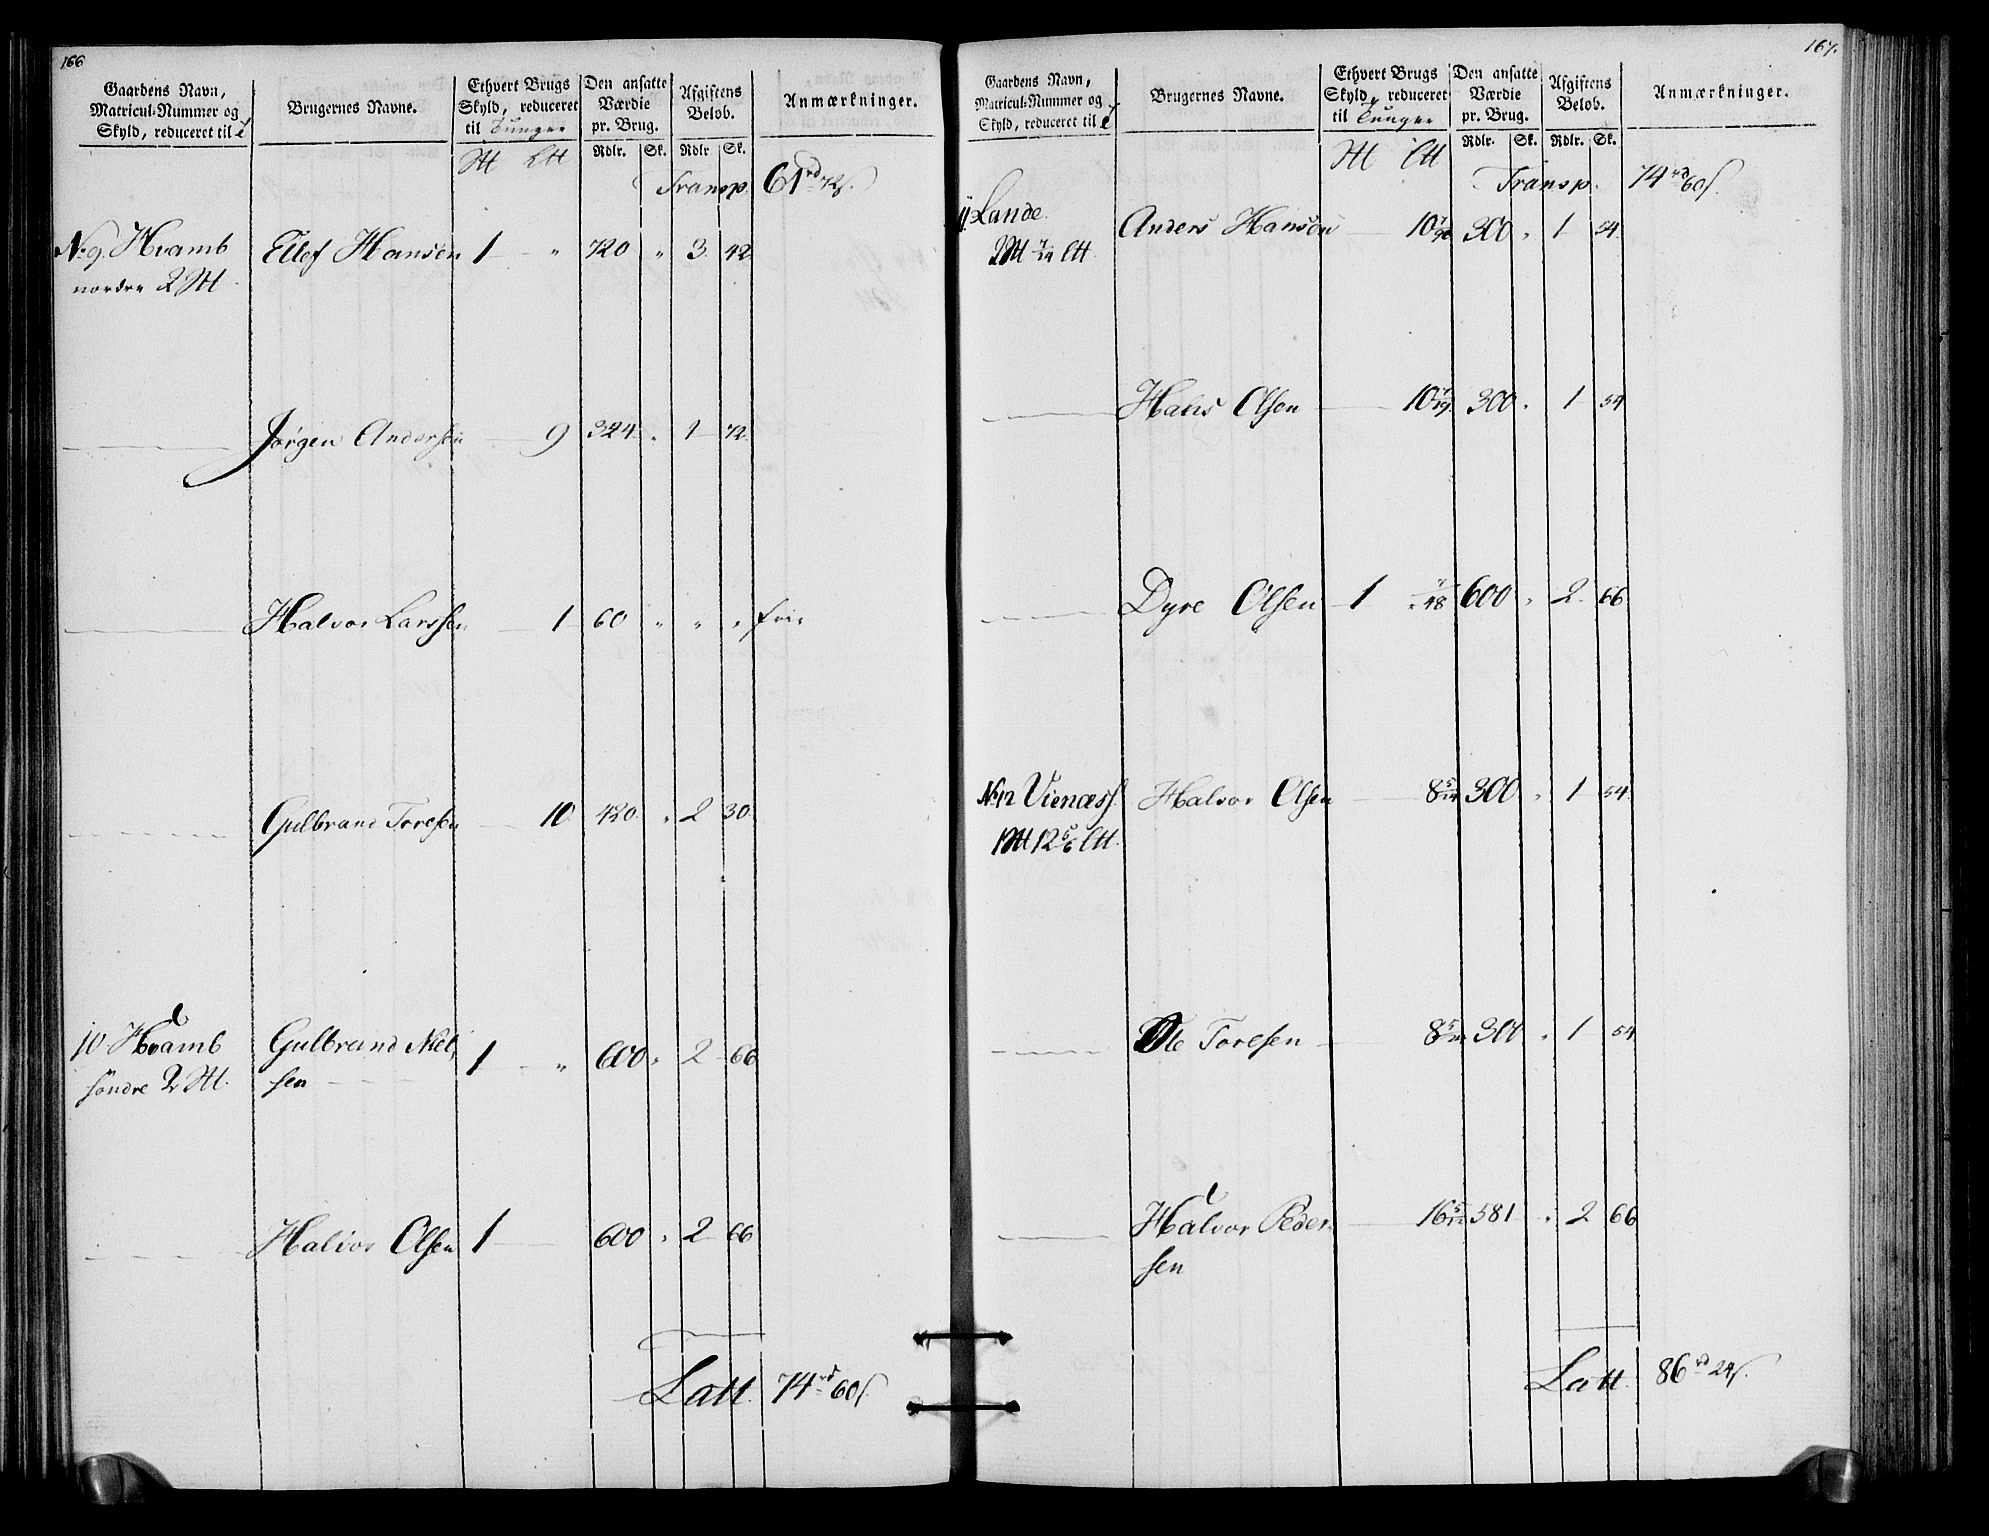 166
Gaardens Navn, Matricul-Nummer og Skyld, reduceret til
Brugernes Navne.
Ethvert Brugs Skyld, reduceret til Tunger
Den ansatte Værdie pr. Brug.
Afgiftens Beløb.
Anmærkninger.
Rdlr. Sk. Rdlr Sk.
Transp. 61 rd 72 s.
No 9. Hvamb Ellef Hansen 1 " 720 " 3 42
nordre 2
Jørgen Andersen 9 324 " 1 72
Halvor Larssen 1 60 " " " frie
Gulbrand Toresen 10 420 " 2 30
10 Hvamb Gulbrand Niel-
søndre 2 sen 1 " 600 " 2 66
Halvor Olsen 1 600 " 2 66
Latt. 74 rd 60 s.
167.
Gaardens Navn, Matricul-Nummer og Skyld, reduceret til
Brugernes Navne.
Ethvert Brugs Skyld, reduceret til Tunger
Den ansatte Værdie pr. Brug.
Afgiftens Beløb.
Anmærkninger.
Rdlr. Sk. Rdlr. Sk.
Transp. 74 rd 60 s.
11. Lande Anders Hansen 10 300 " 1 54
Hans Olsen 10 300 " 1 54
Dyre Olsen 1 600 " 2 66
No 12 Vienæss Halvor Olsen 8 300 " 1 54
12 5/6
Ole Toresen 8 " 1 54
Halvor Peder- 16 581 " 2 66
sen
Latt. 86 rd 24 s.